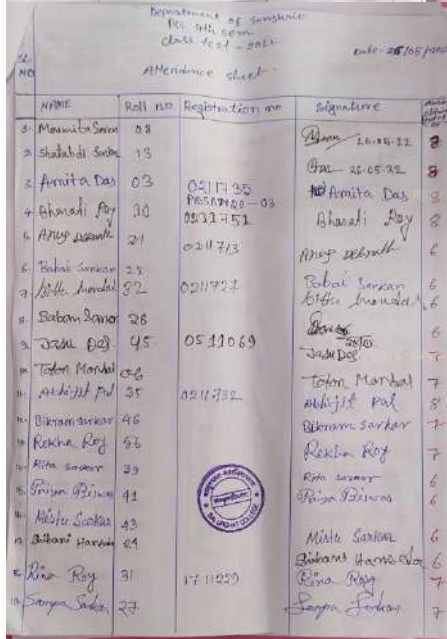 Department of Sanskrit
POI 4th sem
class test - 2022
Date - 26/05/2022
SL. NO
Attendance sheet.
NAME Roll no Registration no Signature
1. Moumita Soren 08 26-05-22 7
2. Shatabdi Sarkar 13 26-05-22 8
3. Amita Das 03 0211735 Amita Das 8
4. Bharati Roy 30 0211751 Bharati Roy 8
5. Anup Debnath 21 0211713 Anup Debnath 6
6. Babai Sarkar 22 Babai Sarkar 6
7. Bittu Mondal 32 0211727 Bittu Mondal 6
8. Baban 26 6
9. Jasu Das 45 0511069 Jasu Das 7
10. Totan Mandal 06 Totan Mandal 7
11. Abhijit Pal 35 0211732 Abhijit Pal 8
12. Bikram Sarkar 46 Bikram Sarkar 7
13. Rekha Roy 56 Rekha Roy 7
14. Rita Sarkar 39 Rita Sarkar 6
15. Priya Biswas 41 Priya Biswas 6
16. Mistu Sarkar 43 Mistu Sarkar 6
17. 29 6
18. Rina Roy 31 1711229 Rina Roy 7
19. Sampa Sarkar 27 Sampa Sarkar 7
BALURGHAT COLLEGE